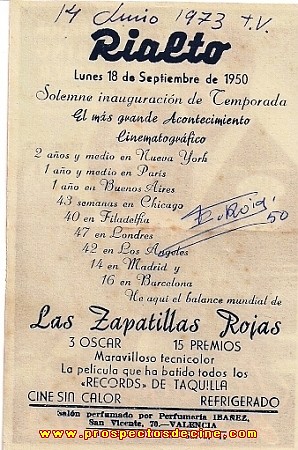 14 Junio 1973 T.V.
Rialto
Lunes 18 de Septiembre de 1950
Solemne inauguración de Temporada
El más grande Acontecimiento
Cinematográfico
2 años y medio en Nueva York
1 año y medio en París
1 año en Buenos Aires
43 semanas en Chicago
40 en Filadelfia
47 en Londres
42 en Los Angeles
14 en Madrid y
16 en Barcelona
50
He aquí el balance mundial de
Las Zapatillas Rojas
3 OSCAR 15 PREMIOS
Maravilloso tecnicolor
La película que ha batido todos los
«RECORDS» DE TAQUILLA
CINE SIN CALOR REFRIGERADO
Salón perfumado por Perfumería IBAÑEZ,
San Vicente, 70.—VALENCIA
www.prospectosdecine.com